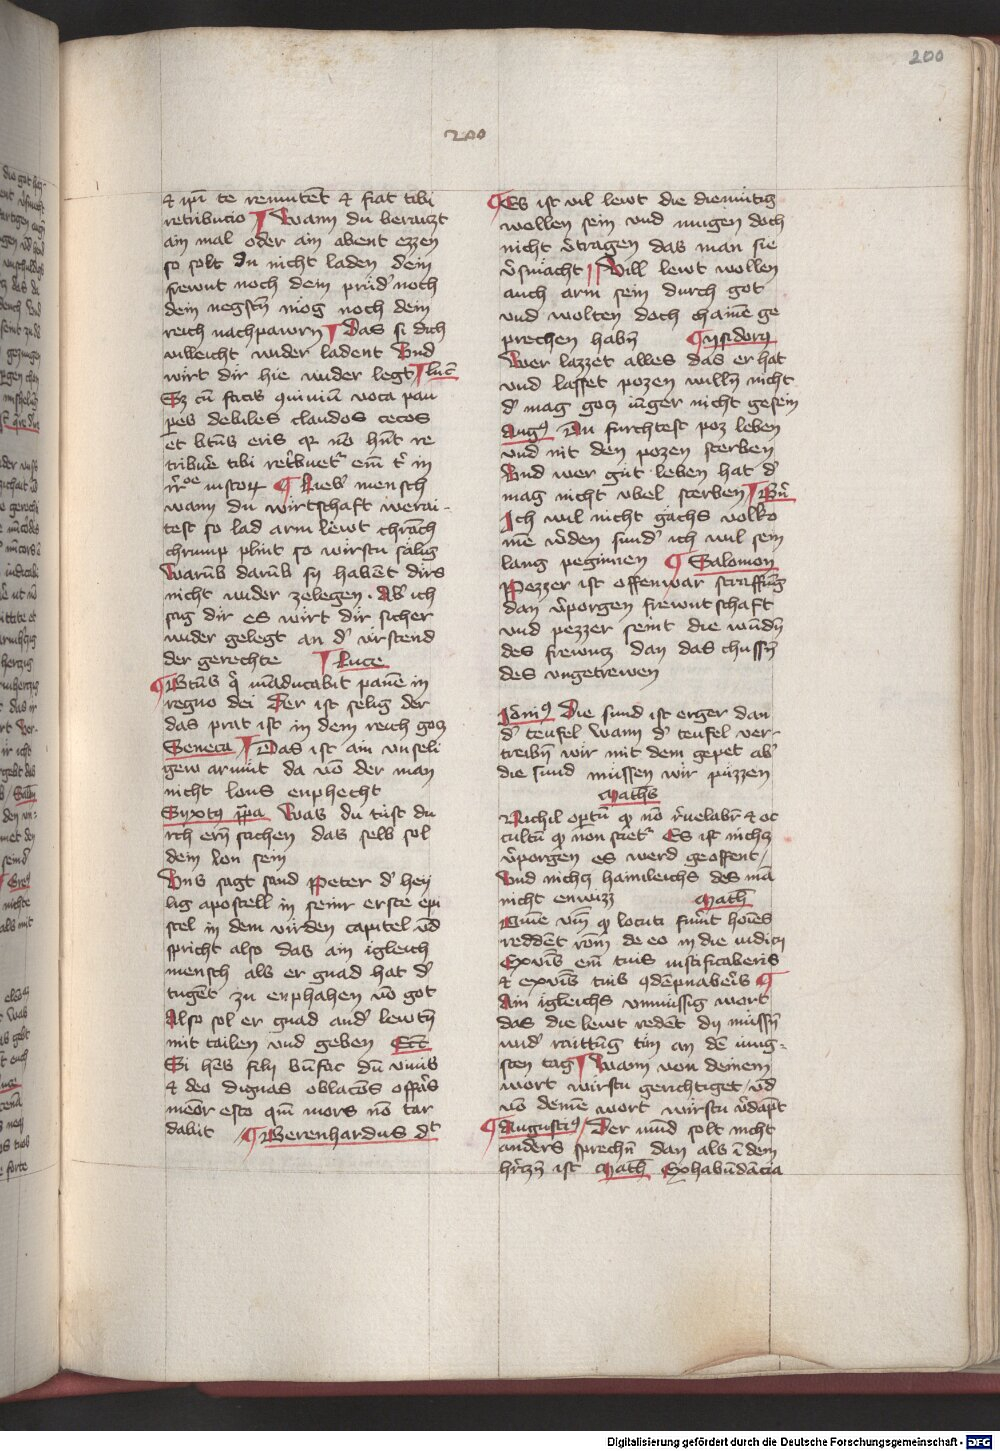 200
200
⁊ ip̄i te reinuitēt ⁊ fiat tibi
retributio ¶ Wann du beraitzt
ain mal oder ain abent ezzen
so solt du nicht laden dein
frewnt noch dein průd' noch
dein negstn̄ mög noch dein
reich nachpawrn ¶ Das si dich
villeicht wider ladent Vnd
wirt dir hie wider legt ¶ luc̄
Sz cū facis ꝯuiuiū voca pau
ꝑes debiles claudos cecos
et bt̄us eris qr nō hn̄t re
tribu'e tibi ret'buet' em̄ t' in
r'r'oe iustoꝝ ¶ Lieb' mensch
wann du wirtschaft werai-
test so lad arm lewt chranch
chrump plint so wirstu sälig
Warūb darūb sy habēt dirs
nicht wider zelegen. Ab' ich
sag dir es wirt dir sicher
wider gelegt an d' vrstend
der gerechte ¶ Luce
¶ Bt̄us q' māducabit panē in
regno dei Der ist selig der
das prat ist in dem reich gotz
Seneca ¶ Das ist ain vnseli
gew armůt da vō der man
nicht lons enphecht
Syxtꝰ p̄pa Was du tůst du
rch ern̄ suchen das selb sol
dein lon sein
Vns sagt sand Peter d' hey
lig apostell in seinr erste epi
stel in dem virden capitel vn̄d
spricht also das ain igleich
mensch als er gnad hat d'
tugēt zu enphahen vō got
Also sol er gnad and' lewtn̄
mit tailen vnd geben Ecc̄
Si hēs fily bn̄fac dū viuis
⁊ deo dignas oblacōes offers
meōr esto qm̄ mors nō tar
dabit // ¶ Berenhardus dt
¶ Es ist vil lewt die diemütig
wollen sein vnd mugen doch
nicht v'tragen das man sie
v'smächt ¶ Vill lewt wollen
auch arm sein durch got
vnd wolten doch chainē ge
prechen habn̄ ¶ ysidorꝰ
Wer lazzet alles das er hat
vnd lasset pozen willn̄ nicht
d' mag gotz iūger nicht gesein
Augꝰ Du furchtest poz leben
vnd nit den pozen sterben
Vnd wer gůt leben hat d'
mag nicht vbel sterben ¶ Bn̄
Ich wil nicht gächs volko
mē w'den sund' ich wil sein
lang peginnen ¶ Salomon
Pezzer ist offenwar straffūg
dan v'porgen frewntschaft
vnd pezzer seint die wūdn̄
des frewntz dan das chussn̄
des vngetrewen
Jeroniꝰ Die sund ist erger dan
d' teufel Wann d' teufel ver-
treibn̄ wir mit dem gepet ab'
die sund müssen wir püzzen
Maths
Nichil optū qd nō r'uelabr ⁊ oc
cultū qd non sciet' Es ist nichtz
v'porgen es werd geoffent /
Vnd nichtz haimleichs des mā
nicht enwizz Math̄
Omē vm̄ qd locuti fūint hoīes
reddēt rōm de eo in die iudicij
Ex v'bis em̄ tuis iustificaberis
⁊ ex v'bis tuis ꝯdēpnaberis ¶
Ain igleichs vnnüssig wort
das die lewt redēt dy müssn̄
wid' raittūg tün an dē iung-
sten tag ¶ Wann von deinem
wort wirstu gerichtiget / vn̄d
vō deinē wort wirstu v'dāpt
¶ Augustiꝰ / Der mūd solt nicht
anders sprechn̄ dan als ī dem
h'rczn̄ ist Math̄ Ex habūdācia
Digitalisierung gefördert durch die Deutsche Forschungsgemeinschaft - DFG